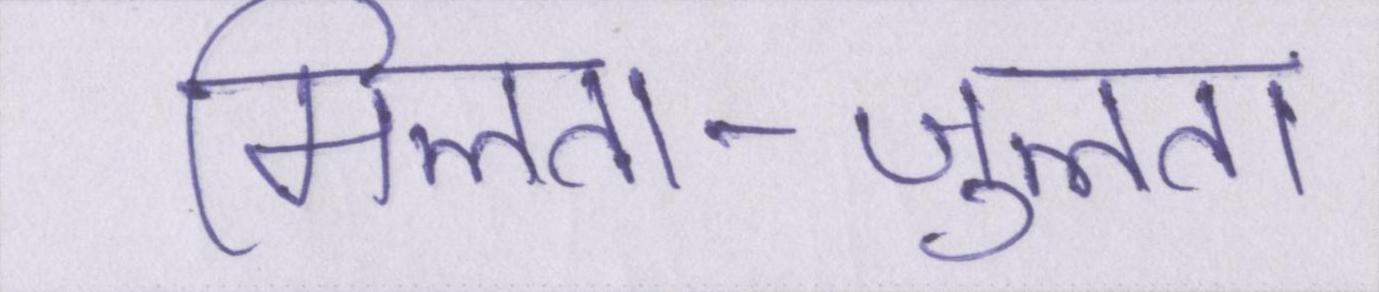 मिलता-जुलता